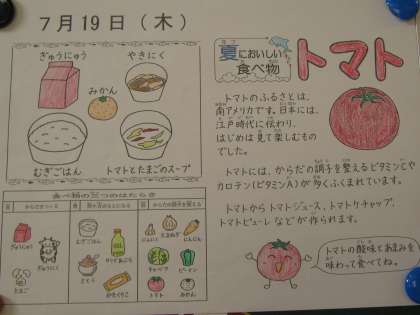 7月19日(木)
ぎゅうにゅう
やきにく
みかん
むぎごはん
トマトとたまごのスープ
夏においしい
食べ物
トマト
トマトのふるさとは、
南アメリカです。日本には、
江戸時代に伝わり、
はじめは見て楽しむもの
でした。
トマトには、からだの調子を整えるビタミンCや
カロテン(ビタミンA)が多くふくまれています。
トマトからトマトジュース、トマトケチャップ、
トマトピューレなどが作られます。
トマトの酸味とあまみを
味わって食べてね。
食べ物の三つのはたらき
からだの調子を整える
ぎゅうにゅう
ぎゅうにく
たまご
むぎごはん
さとう
かたくりこ
にんにく
たまねぎ
にんじん
キャベツ
ピーマン
トマト
みかん